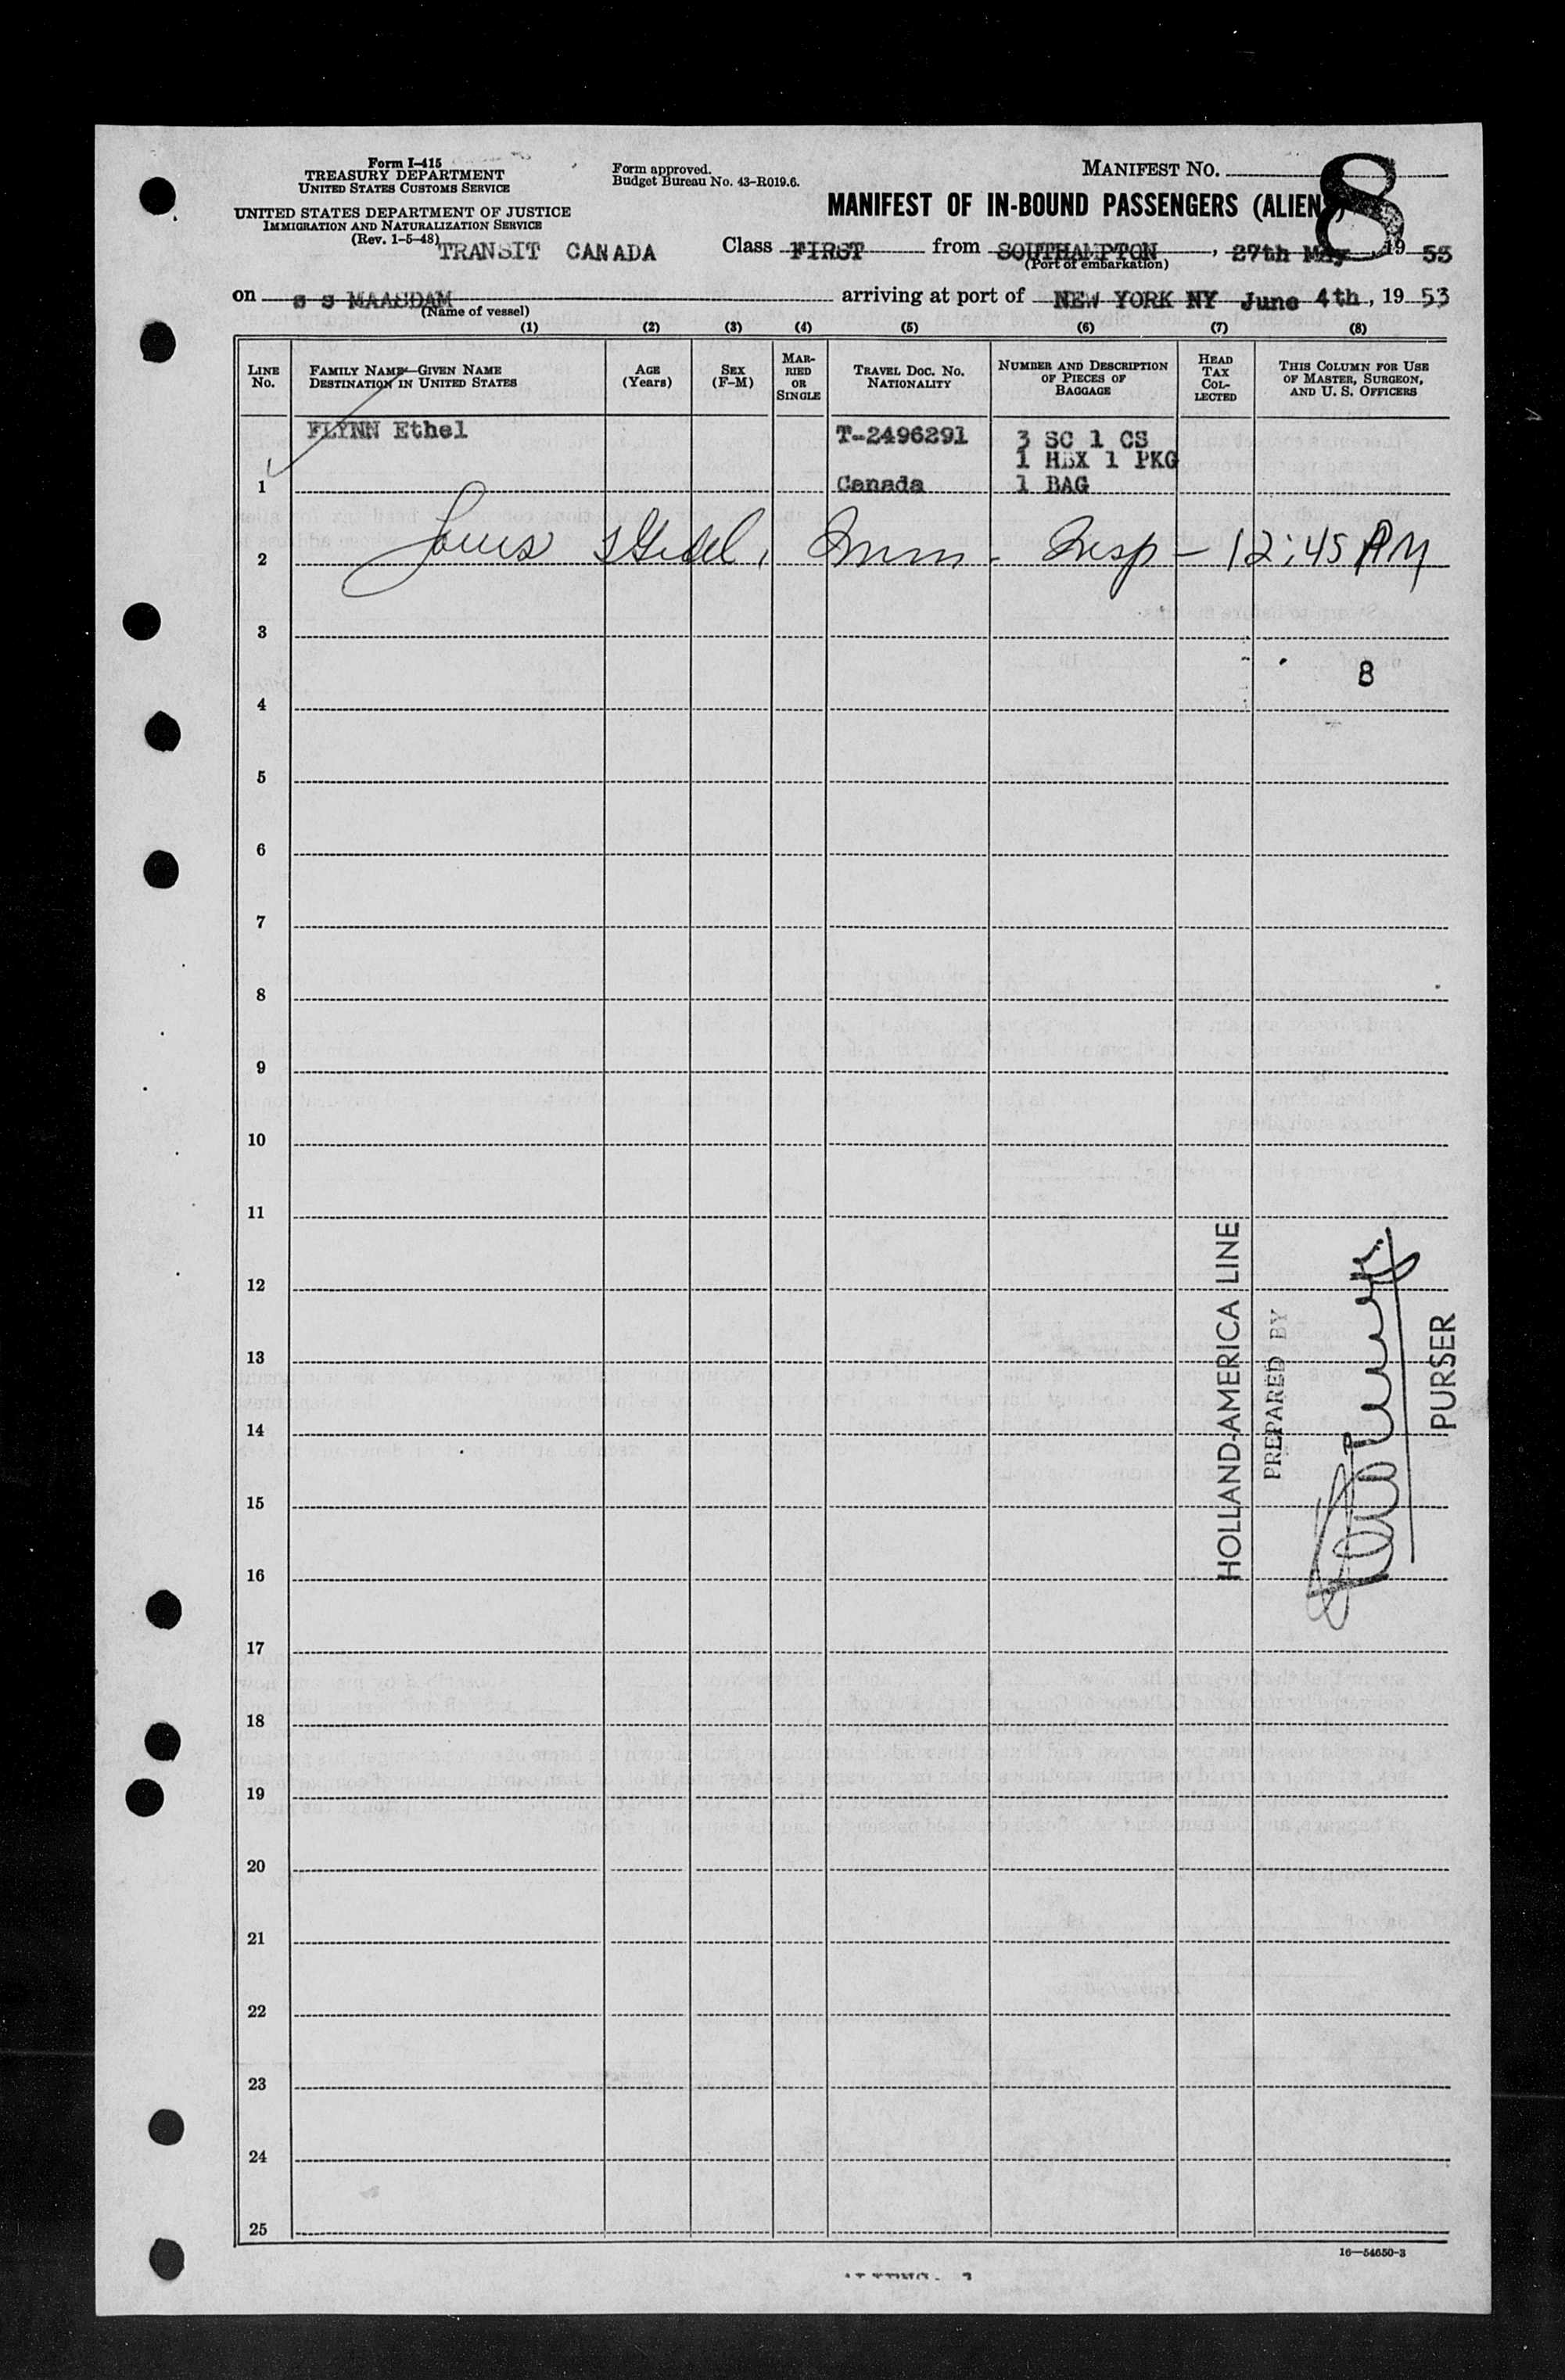 Form I-415
TREASURY DEPARTMENT
UNITED STATES CUSTOMS SERVICE
UNITED STATES DEPARTMENT OF JUSTICE
IMMIGRATION AND NATURALIZATION SERVICE
(Rev. 1-5-48)
Form approved.
Budget Bureau No. 43-R019.6.
MANIFEST NO.
8
MANIFEST OF IN-BOUND PASSENGERS (ALIENS)
TRANSIT CANADA
Class FIRST from SOUTHAMPTON, 27th May, 19 53
(Port of embarkation)
on s s MAASDAM arriving at port of NEW YORK NY June 4th, 19 53
(Name of vessel)
(1) (2) (3) (4) (5) (6) (7) (8)
LINE No.
FAMILY NAME—GIVEN NAME
DESTINATION IN UNITED STATES
AGE (Years)
SEX (F-M)
MARRIED OR SINGLE
TRAVEL DOC. NO.
NATIONALITY
NUMBER AND DESCRIPTION OF PIECES OF BAGGAGE
HEAD TAX COLLECTED
THIS COLUMN FOR USE OF MASTER, SURGEON, AND U. S. OFFICERS
FLYNN Ethel T-2496291 3 SC 1 CS
1 HBX 1 PKG
1 Canada 1 BAG
2 Louis Imm - Insp - 12:45 PM
3
8
4
5
6
7
8
9
10
11
12
13
14
15
16
17
18
19
20
21
22
23
24
25
HOLLAND-AMERICA LINE
PREPARED BY
PURSER
16—54650-3